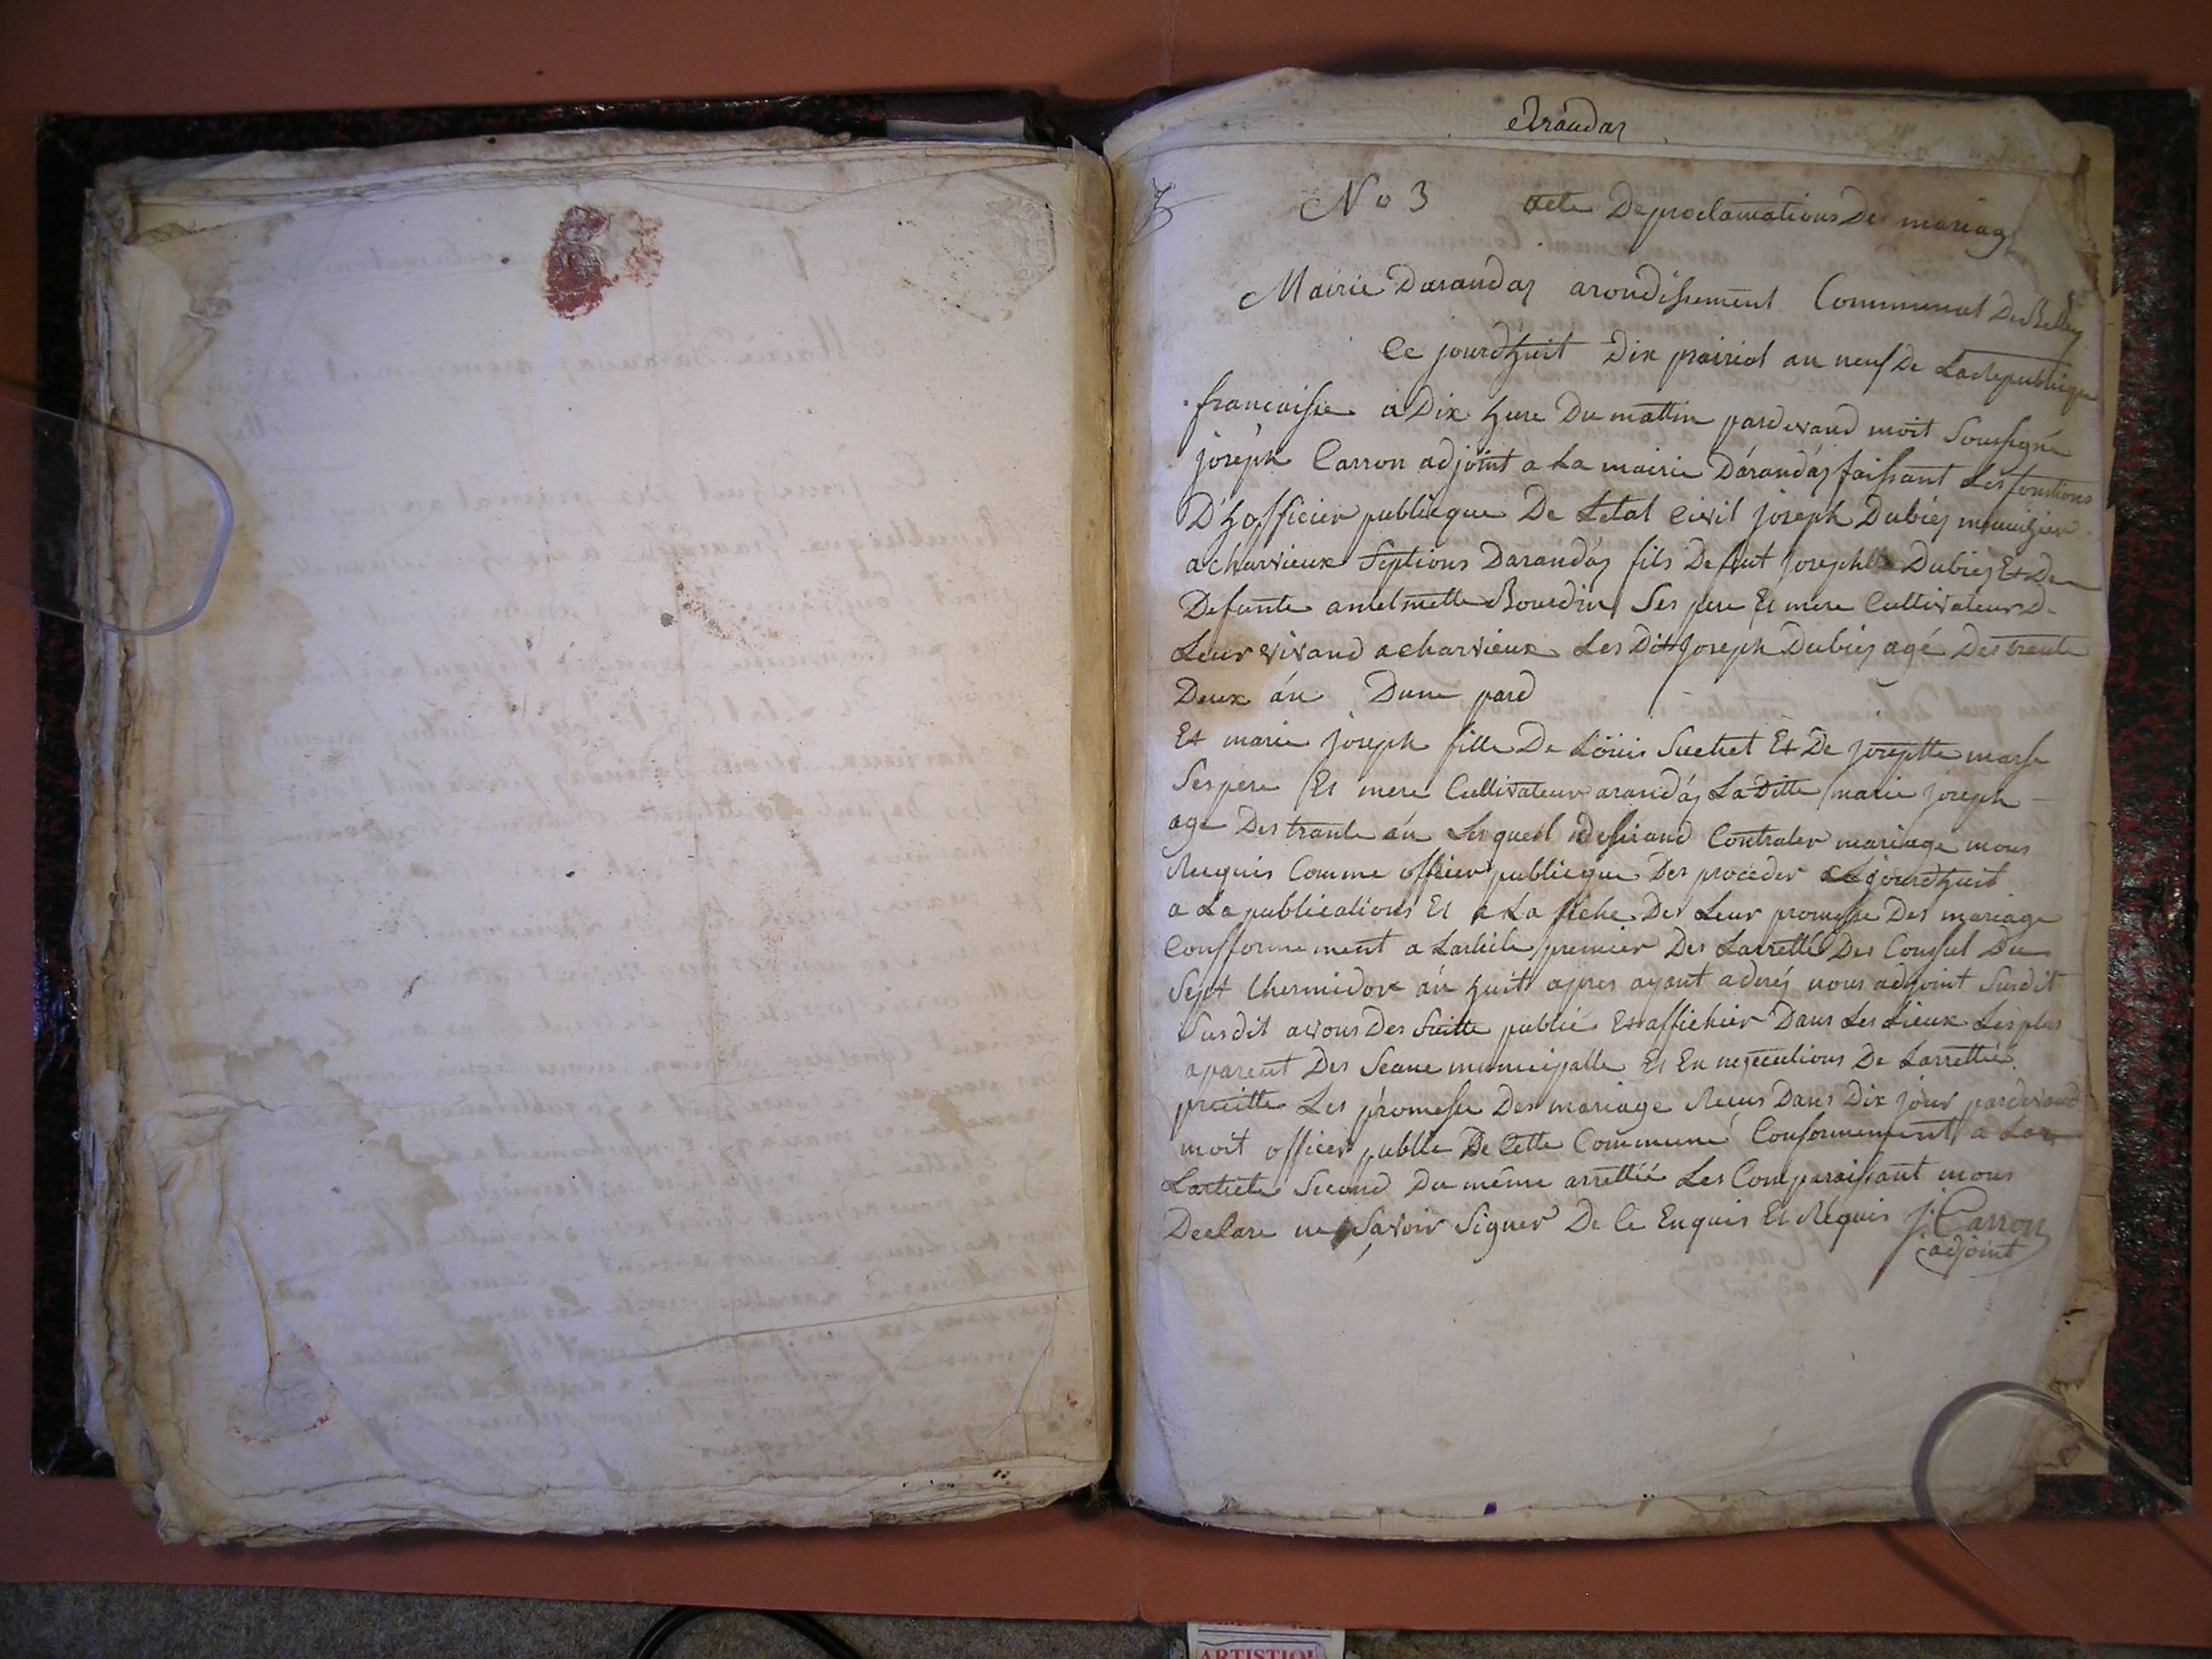 Arandas
No 3 acte De proclamations Des mariag
Mairie Darandas arondissement Communal De Belley
Ce jourd'huit Dix prairial an neuf De La Republique
francaisse a Dix hure Du mattin pardevand moit Soussigné
joseph Carron adjoint a La mairie Darandas faissant Les fonctions
D'hofficier publicque De Letat Civil joseph Dubiez meunier
a charvieux Septions Darandas fils De fut joseph Dubiez Et De
Defunte antelmette Bourdin Ses pere Et mere Cultivateur De
Leur vivand a charvieux Les Dit joseph Dubiez agé Des trante
Deux án Dune pard
Et marie joseph fille De Loüis Suchet Et De josephtte marse
Ses pére Et mere Cultivateur arandas La Ditte marie joseph
age Des trante án Lesqueil Desirand Contrater mariage nous
Requis Comme officier publicque Des proceder Cejourdhuit
a La publications Et a La fiche Des Leur promesse Des mariage
Confformement a Larticle premier Des Larretté Des Consul Du
Sept thermidor án huit apres ayant aderéz nous adjoint Susdit
Susdit avons Des Suitte publié Et affichier Dans Les Lieux Les plus
aparent Des Seance municipalle Et En nexecutions De Larrettié
precitte Les promesse Des mariage Recus Dans Dix jour pardevand
moit officier publle De Cette Commune Conformement a La
Larticle Second Du même arrettié Les Comparaissant nous
Declare ne Savoir Signer De Ce Enquis Et Requis j. Carron
adjoint
ARTISTIQ